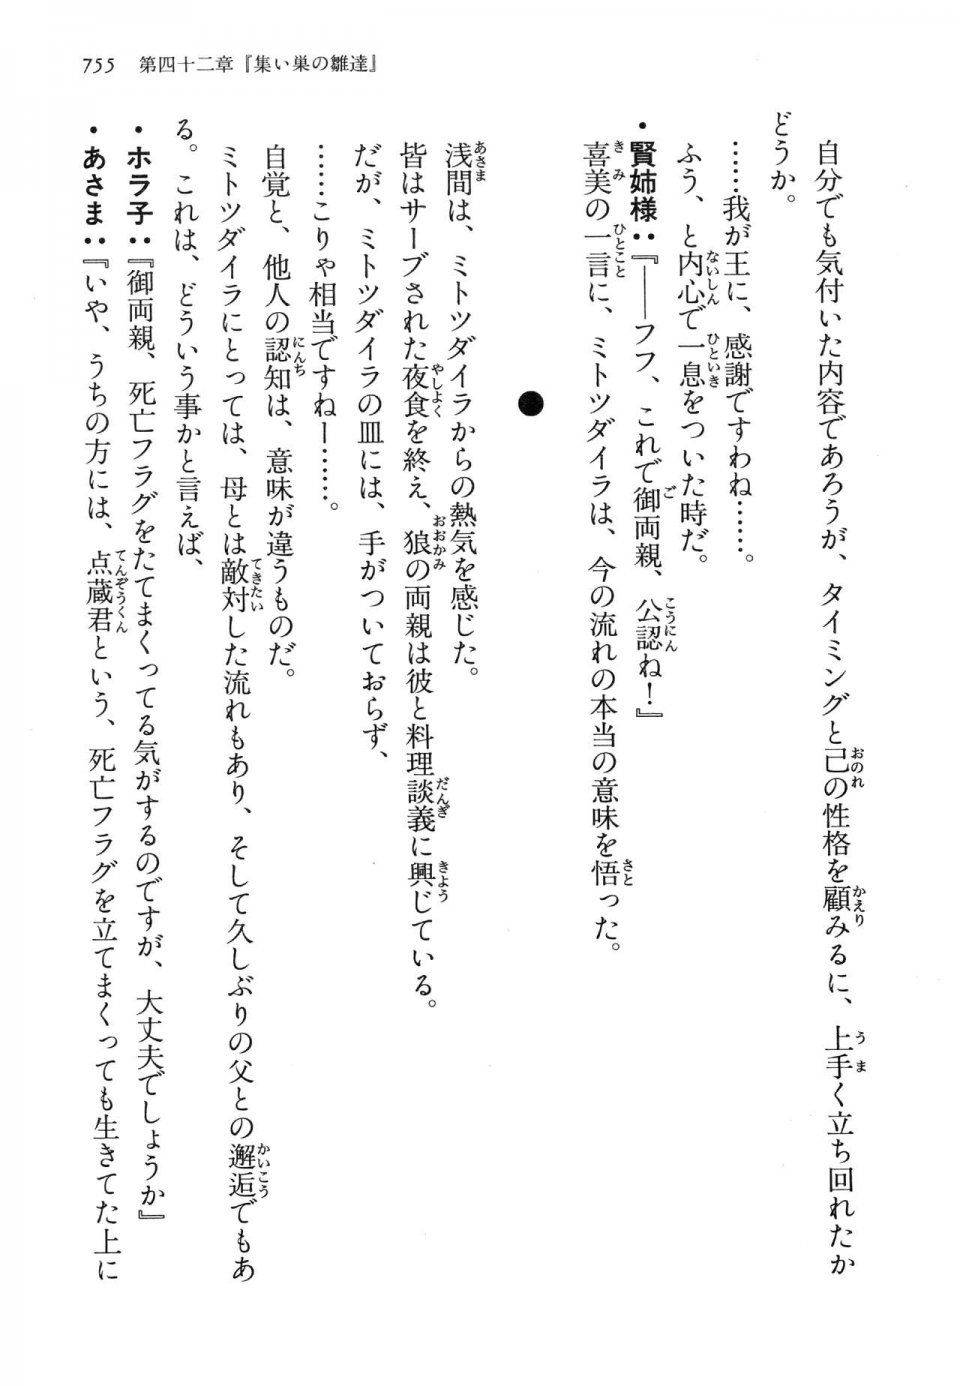 755　第四十二章『集い巣の雛達』
　自分でも気付いた内容であろうが、タイミングと己の性格を顧みるに、上手く立ち回れたか
どうか。
　……我が王に、感謝ですわね……。
　ふう、と内心で一息をついた時だ。
・賢姉様：『――フフ、これで御両親、公認ね！』
　喜美の一言に、ミトツダイラは、今の流れの本当の意味を悟った。
●
　浅間は、ミトツダイラからの熱気を感じた。
　皆はサーブされた夜食を終え、狼の両親は彼と料理談義に興じている。
　だが、ミトツダイラの皿には、手がついておらず、
　……こりゃ相当ですねー……。
　自覚と、他人の認知は、意味が違うものだ。
　ミトツダイラにとっては、母とは敵対した流れもあり、そして久しぶりの父との邂逅でもあ
る。これは、どういう事かと言えば、
・ホラ子：『御両親、死亡フラグをたてまくってる気がするのですが、大丈夫でしょうか』
・あさま：『いや、うちの方には、点蔵君という、死亡フラグを立てまくっても生きてた上に